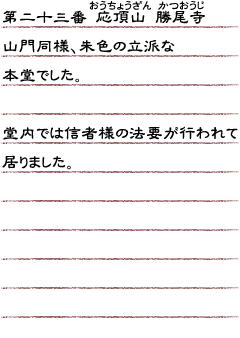 おうちょうざん かつおうじ
第二十三番 応頂山 勝尾寺
山門同様、朱色の立派な
本堂でした。
堂内では信者様の法要が行われて
居りました。